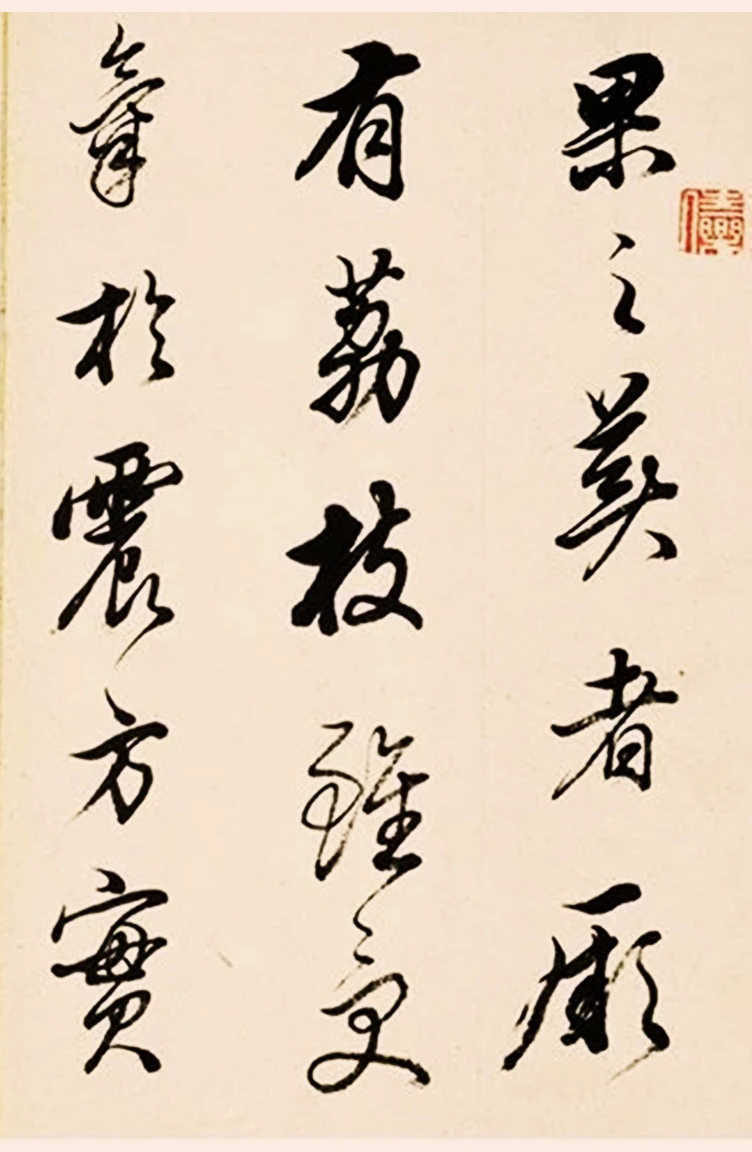 果之美者厥
有荔枝雖受
氣於震方實